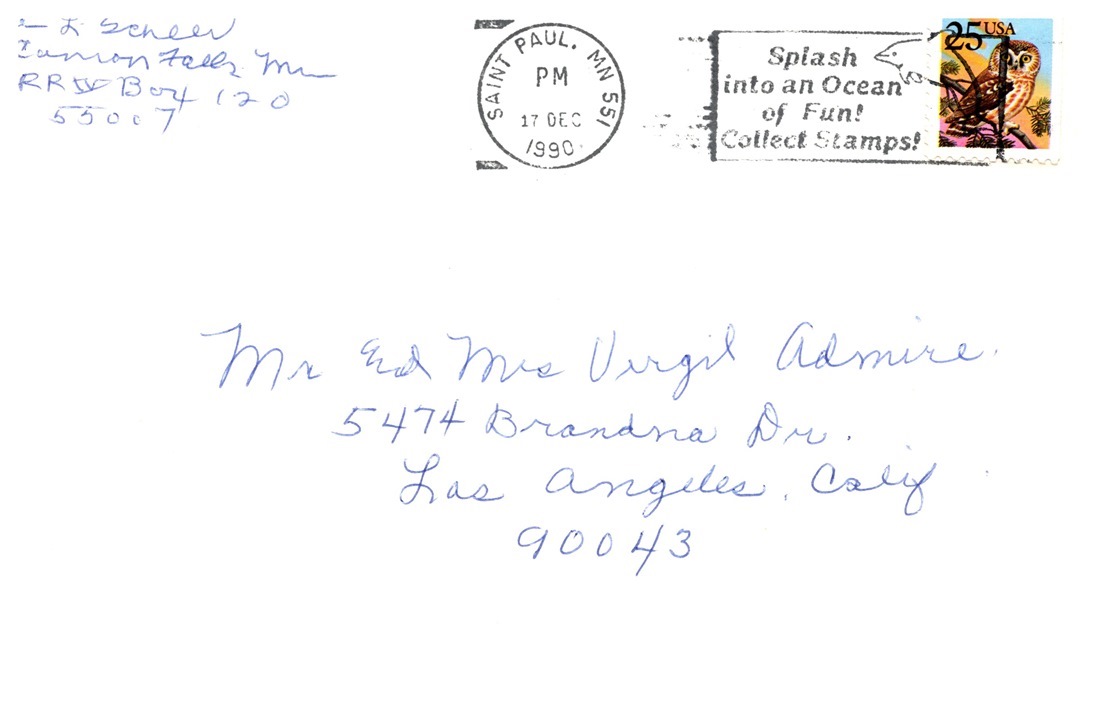 L J Scheer
Cannon Falls Mn
RR IV Box 120
55017
SAINT PAUL, MN 551
PM
17 DEC
1990
Splash
into an Ocean
of Fun!
Collect Stamps!
25 USA
Mr End Mrs Virgil Admire.
5474 Brandna Dr.
Los Angeles, Calif
90043